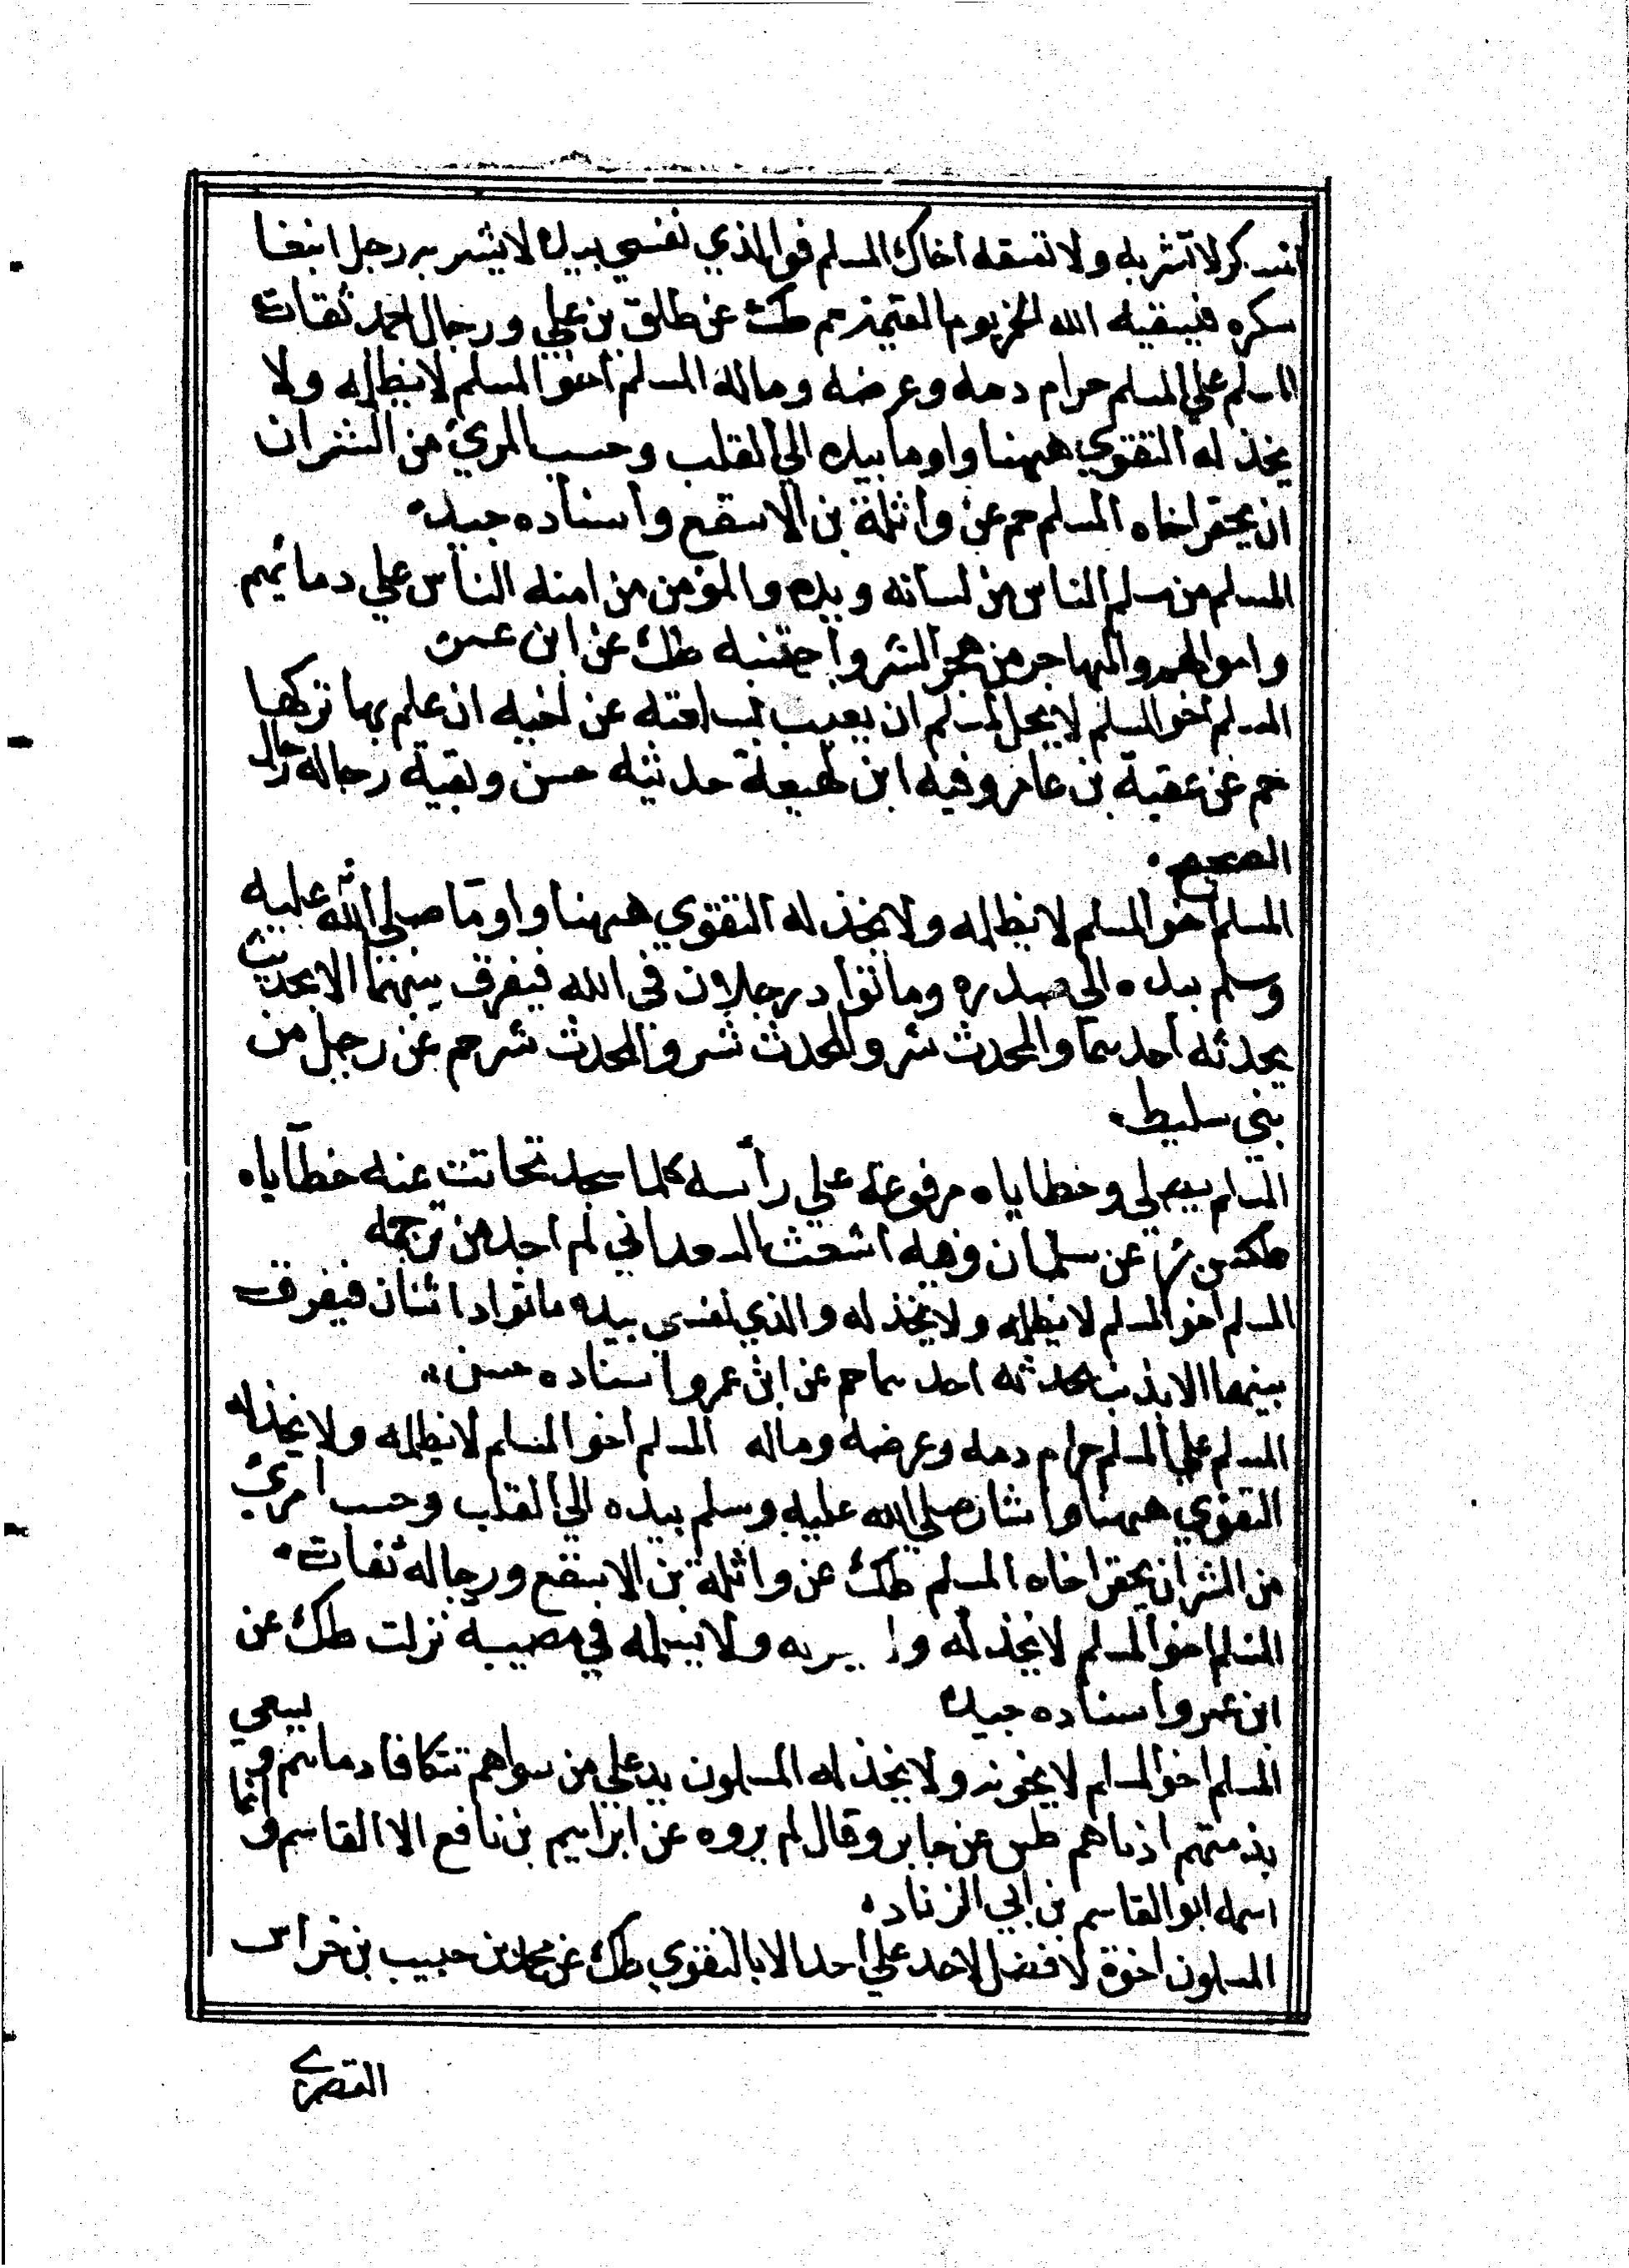 المسكر لا تشربه ولا تسقه اخاك المسلم فوالذي نفسي بيده لا يشربه رجل ابتغا
سكره فيسقيه الله الخمر يوم القيمة حم طك عن طلق بن علي ورجال احمد ثقات
المسلم علي المسلم حرام دمه وعرضه وماله المسلم اخو المسلم لا يظلمه ولا
يخذله التقوي ههنا واوما بيده الي القلب وحسب المرئ من الشر ان
ان يحقر اخاه المسلم حم عن واثلة بن الاسقع واسناده جيد
المسلم من سلم الناس من لسانه ويده والمؤمن من امنه الناس علي دمائهم
واموالهم والمهاجر من هجر الشر واجتنبه طك عن ابن عمر
المسلم اخو المسلم لا يحل لمسلم ان يعيب بسلعته عن اخيه ان علم بها تركها
حم عن عقبة بن عامر وفيه ابن لهيعة حديثه حسن وبقية رجاله رجال
الصحيح
المسلم اخو المسلم لا يظلمه ولا يخذله التقوي ههنا واوما صلي الله عليه
وسلم بيده الي صدره وما تواد رجلان في الله فيفرق بينهما الا بحدث
يحدثه احدهما والمحدث شر والمحدث شر والمحدث شر حم عن رجل من
بني سليط
المسلم يصلي وخطاياه مرفوعة علي رأسه كلما سجد تحاتت عنه خطاياه
عن سلمان وفيه اشعث السعداني لم اجد من ترجمه
المسلم اخو المسلم لا يظلمه ولا يخذله والذي نفسي بيده ما تواد اثنان فيفرق
بينهما الا بذنب يحدثه احدهما حم عن ابن عمر واسناده حسن
المسلم علي المسلم حرام دمه وعرضه وماله المسلم اخو المسلم لا يظلمه ولا يخذله
التقوي ههنا واشار صلي الله عليه وسلم بيده الي القلب وحسب امرئ
من الشر ان يحقر اخاه المسلم طك عن واثلة بن الاسقع ورجاله ثقات
المسلم اخو المسلم لا يخذله ولا يسلمه في مصيبة نزلت طك عن
ابن عمر واسناده جيد
المسلم اخو المسلم لا يخونه ولا يخذله المسلمون يد علي من سواهم تتكافا دماهم ويسعي
بذمتهم ادناهم طس عن جابر وقال لم يروه عن ابراهيم بن نافع الا القاسم وانما
اسمه ابو القاسم بن ابي الزناد
المسلمون اخوة لا فضل لاحد علي احد الا بالتقوي طك عن محمد بن حبيب بن خراس
القصري